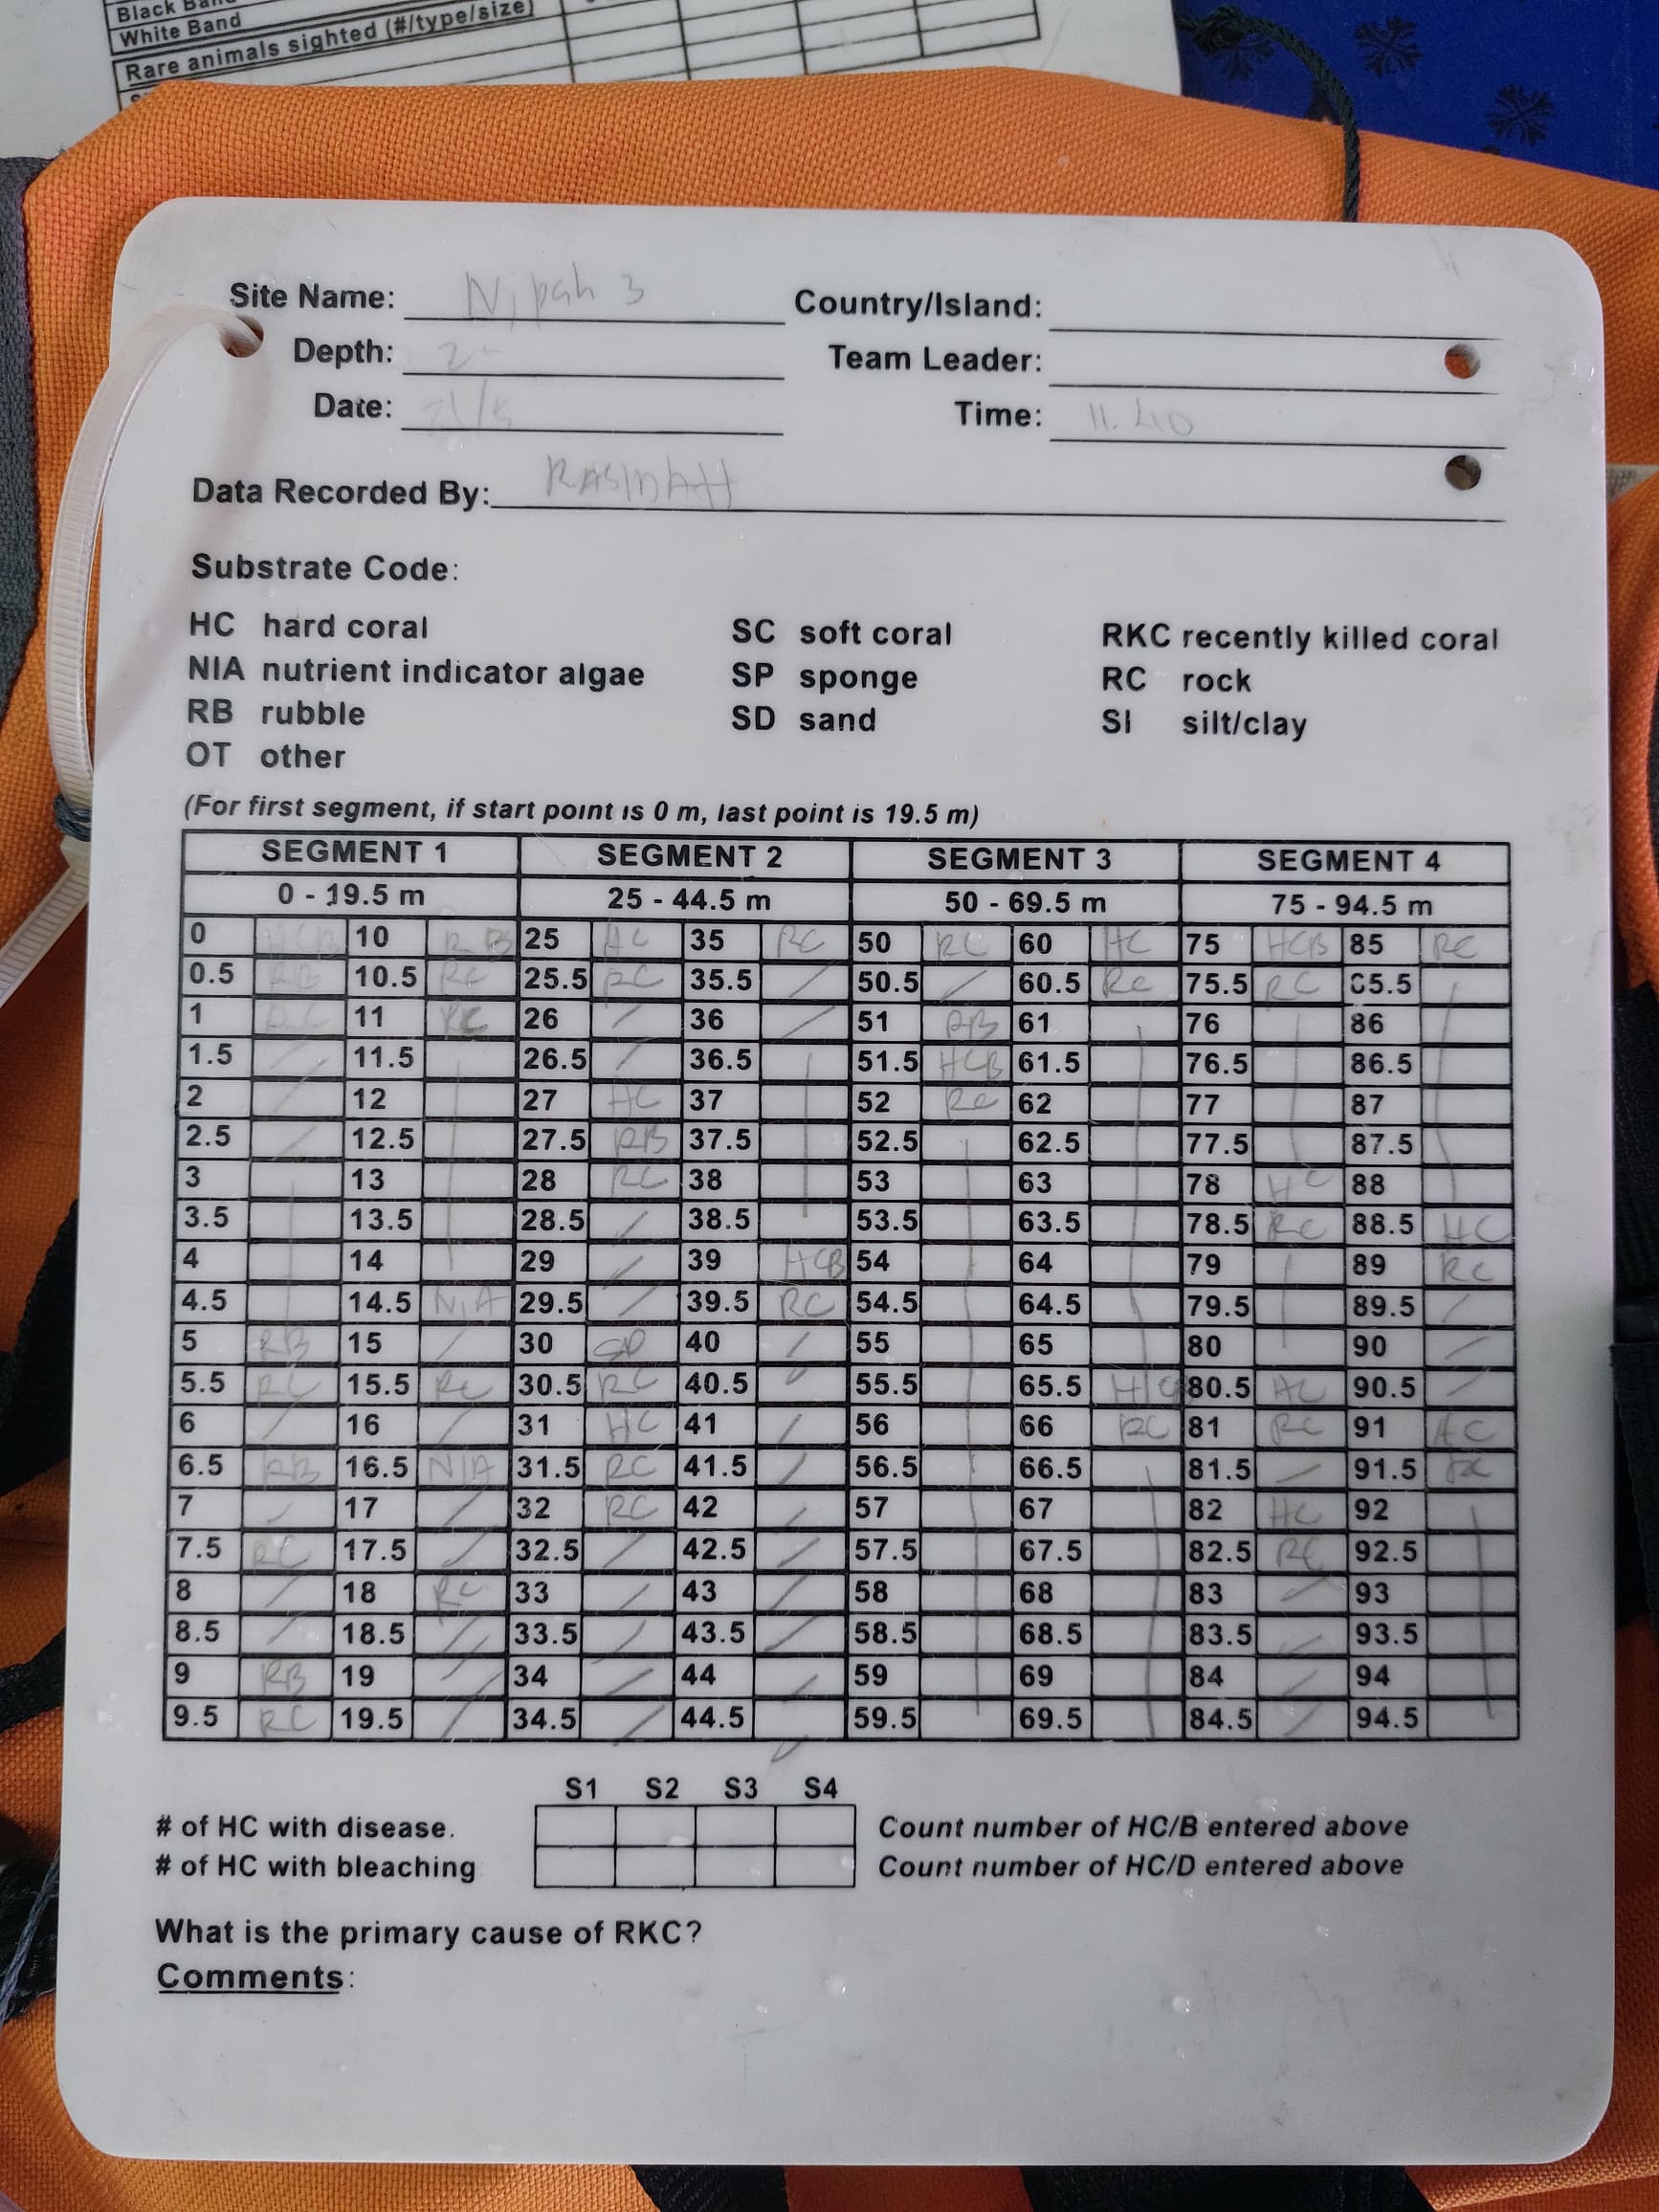 Black Band
White Band
Rare animals sighted (#/type/size)
Site Name: Nipah 3 Country/Island:
Depth: Team Leader:
Date: 21/5 Time: 11.40
Data Recorded By: RASINAH
Substrate Code:
HC hard coral SC soft coral RKC recently killed coral
NIA nutrient indicator algae SP sponge RC rock
RB rubble SD sand SI silt/clay
OT other
(For first segment, if start point is 0 m, last point is 19.5 m)
SEGMENT 1 SEGMENT 2 SEGMENT 3 SEGMENT 4
0 - 19.5 m 25 - 44.5 m 50 - 69.5 m 75 - 94.5 m
0 HCB 10 RB 25 HC 35 RC 50 RC 60 HC 75 HCB 85 RC
0.5 RB 10.5 RC 25.5 RC 35.5 / 50.5 / 60.5 RC 75.5 RC 85.5
1 RC 11 RC 26 / 36 / 51 RB 61 76 86
1.5 / 11.5 26.5 / 36.5 51.5 HCB 61.5 76.5 86.5
2 / 12 27 HC 37 52 RC 62 77 87
2.5 / 12.5 27.5 RB 37.5 52.5 62.5 77.5 87.5
3 13 28 RC 38 53 63 78 HC 88
3.5 13.5 28.5 / 38.5 53.5 63.5 78.5 RC 88.5 HC
4 14 29 / 39 HCB 54 64 79 89 RC
4.5 14.5 NIA 29.5 / 39.5 RC 54.5 64.5 79.5 89.5 /
5 RB 15 / 30 40 / 55 65 80 90 /
5.5 RC 15.5 RC 30.5 RC 40.5 / 55.5 65.5 80.5 HC 90.5 /
6 / 16 / 31 HC 41 / 56 66 RC 81 RC 91 HC
6.5 RB 16.5 NIA 31.5 RC 41.5 / 56.5 66.5 81.5 / 91.5
7 / 17 / 32 RC 42 / 57 67 82 HC 92
7.5 RC 17.5 / 32.5 / 42.5 / 57.5 67.5 82.5 RC 92.5
8 / 18 RC 33 / 43 / 58 68 83 / 93
8.5 / 18.5 / 33.5 / 43.5 / 58.5 68.5 83.5 / 93.5
9 RB 19 / 34 / 44 / 59 69 84 / 94
9.5 RC 19.5 / 34.5 / 44.5 / 59.5 69.5 84.5 / 94.5
S1 S2 S3 S4
# of HC with disease. Count number of HC/B entered above
# of HC with bleaching Count number of HC/D entered above
What is the primary cause of RKC?
Comments: